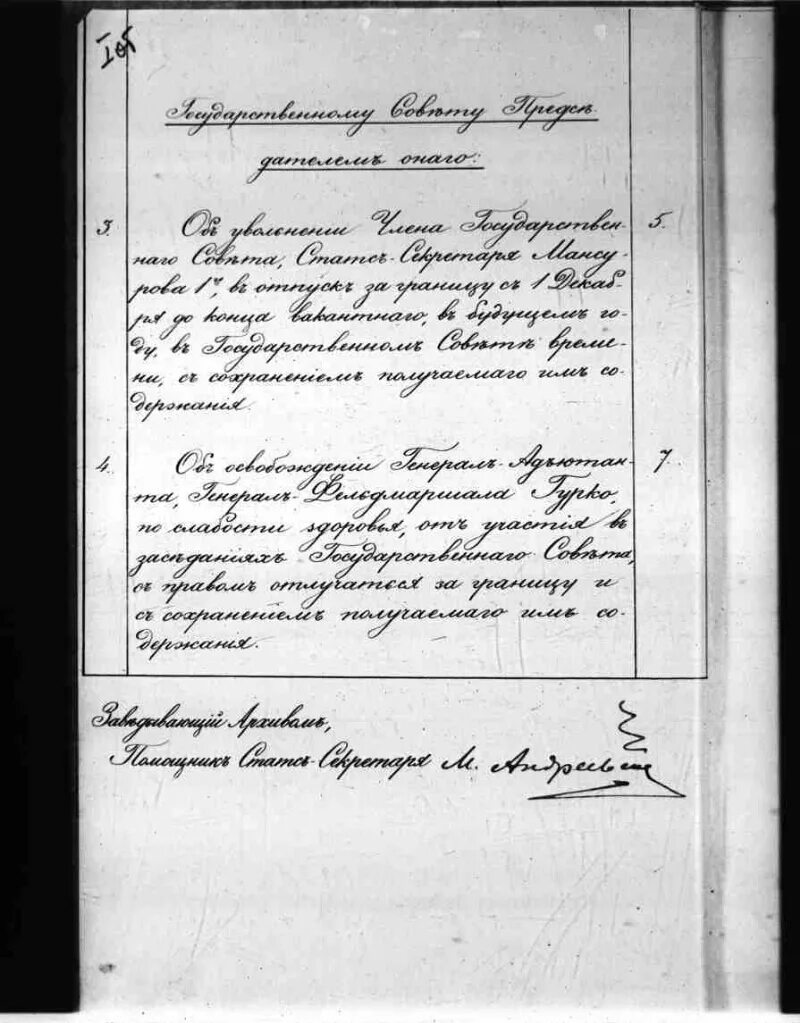 Государственному Совѣту Предсѣ
дателемъ онаго:
3. Объ увольненіи Члена Государствен- 5.
наго Совѣта, Статсъ-Секретаря Мансу-
рова 1го, въ отпускъ за границу съ 1 Декаб-
ря до конца вакантнаго, въ будущемъ го-
ду, въ Государственномъ Совѣтѣ време-
ни, съ сохраненіемъ получаемаго имъ со-
держанія.
4. Объ освобожденіи Генералъ-Адъютан- 7.
та, Генералъ-Фельдмаршала Гурко,
по слабости здоровья, отъ участія въ
засѣданіяхъ Государственнаго Совѣта,
съ правомъ отлучаться за границу и
съ сохраненіемъ получаемаго имъ со-
держанія.
Завѣдывающій Архивомъ,
Помощникъ Статсъ-Секретаря М. Андреевъ